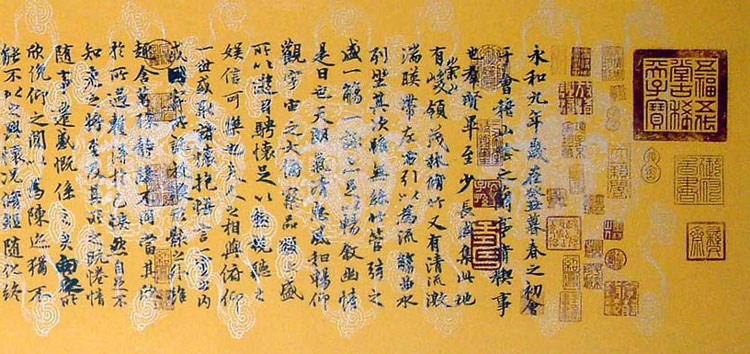 五福五代
堂古稀
天子寶
永和九年歲在癸丑暮春之初會
于會稽山陰之蘭亭脩禊事
也羣賢畢至少長咸集此地
有崇山峻領茂林脩竹又有清流激
湍暎帶左右引以為流觴曲水
列坐其次雖無絲竹管弦之
盛一觴一詠亦足以暢敘幽情
是日也天朗氣清惠風和暢仰
觀宇宙之大俯察品類之盛
所以遊目騁懷足以極視聽之
娛信可樂也夫人之相與俯仰
一世或取諸懷抱悟言一室之內
或因寄所託放浪形骸之外雖
趣舍萬殊靜躁不同當其欣
於所遇暫得於己快然自足不
知老之將至及其所之既惓情
隨事遷感慨係之矣向之所
欣俛仰之間以為陳迹猶不
能不以之興懷況脩短隨化終